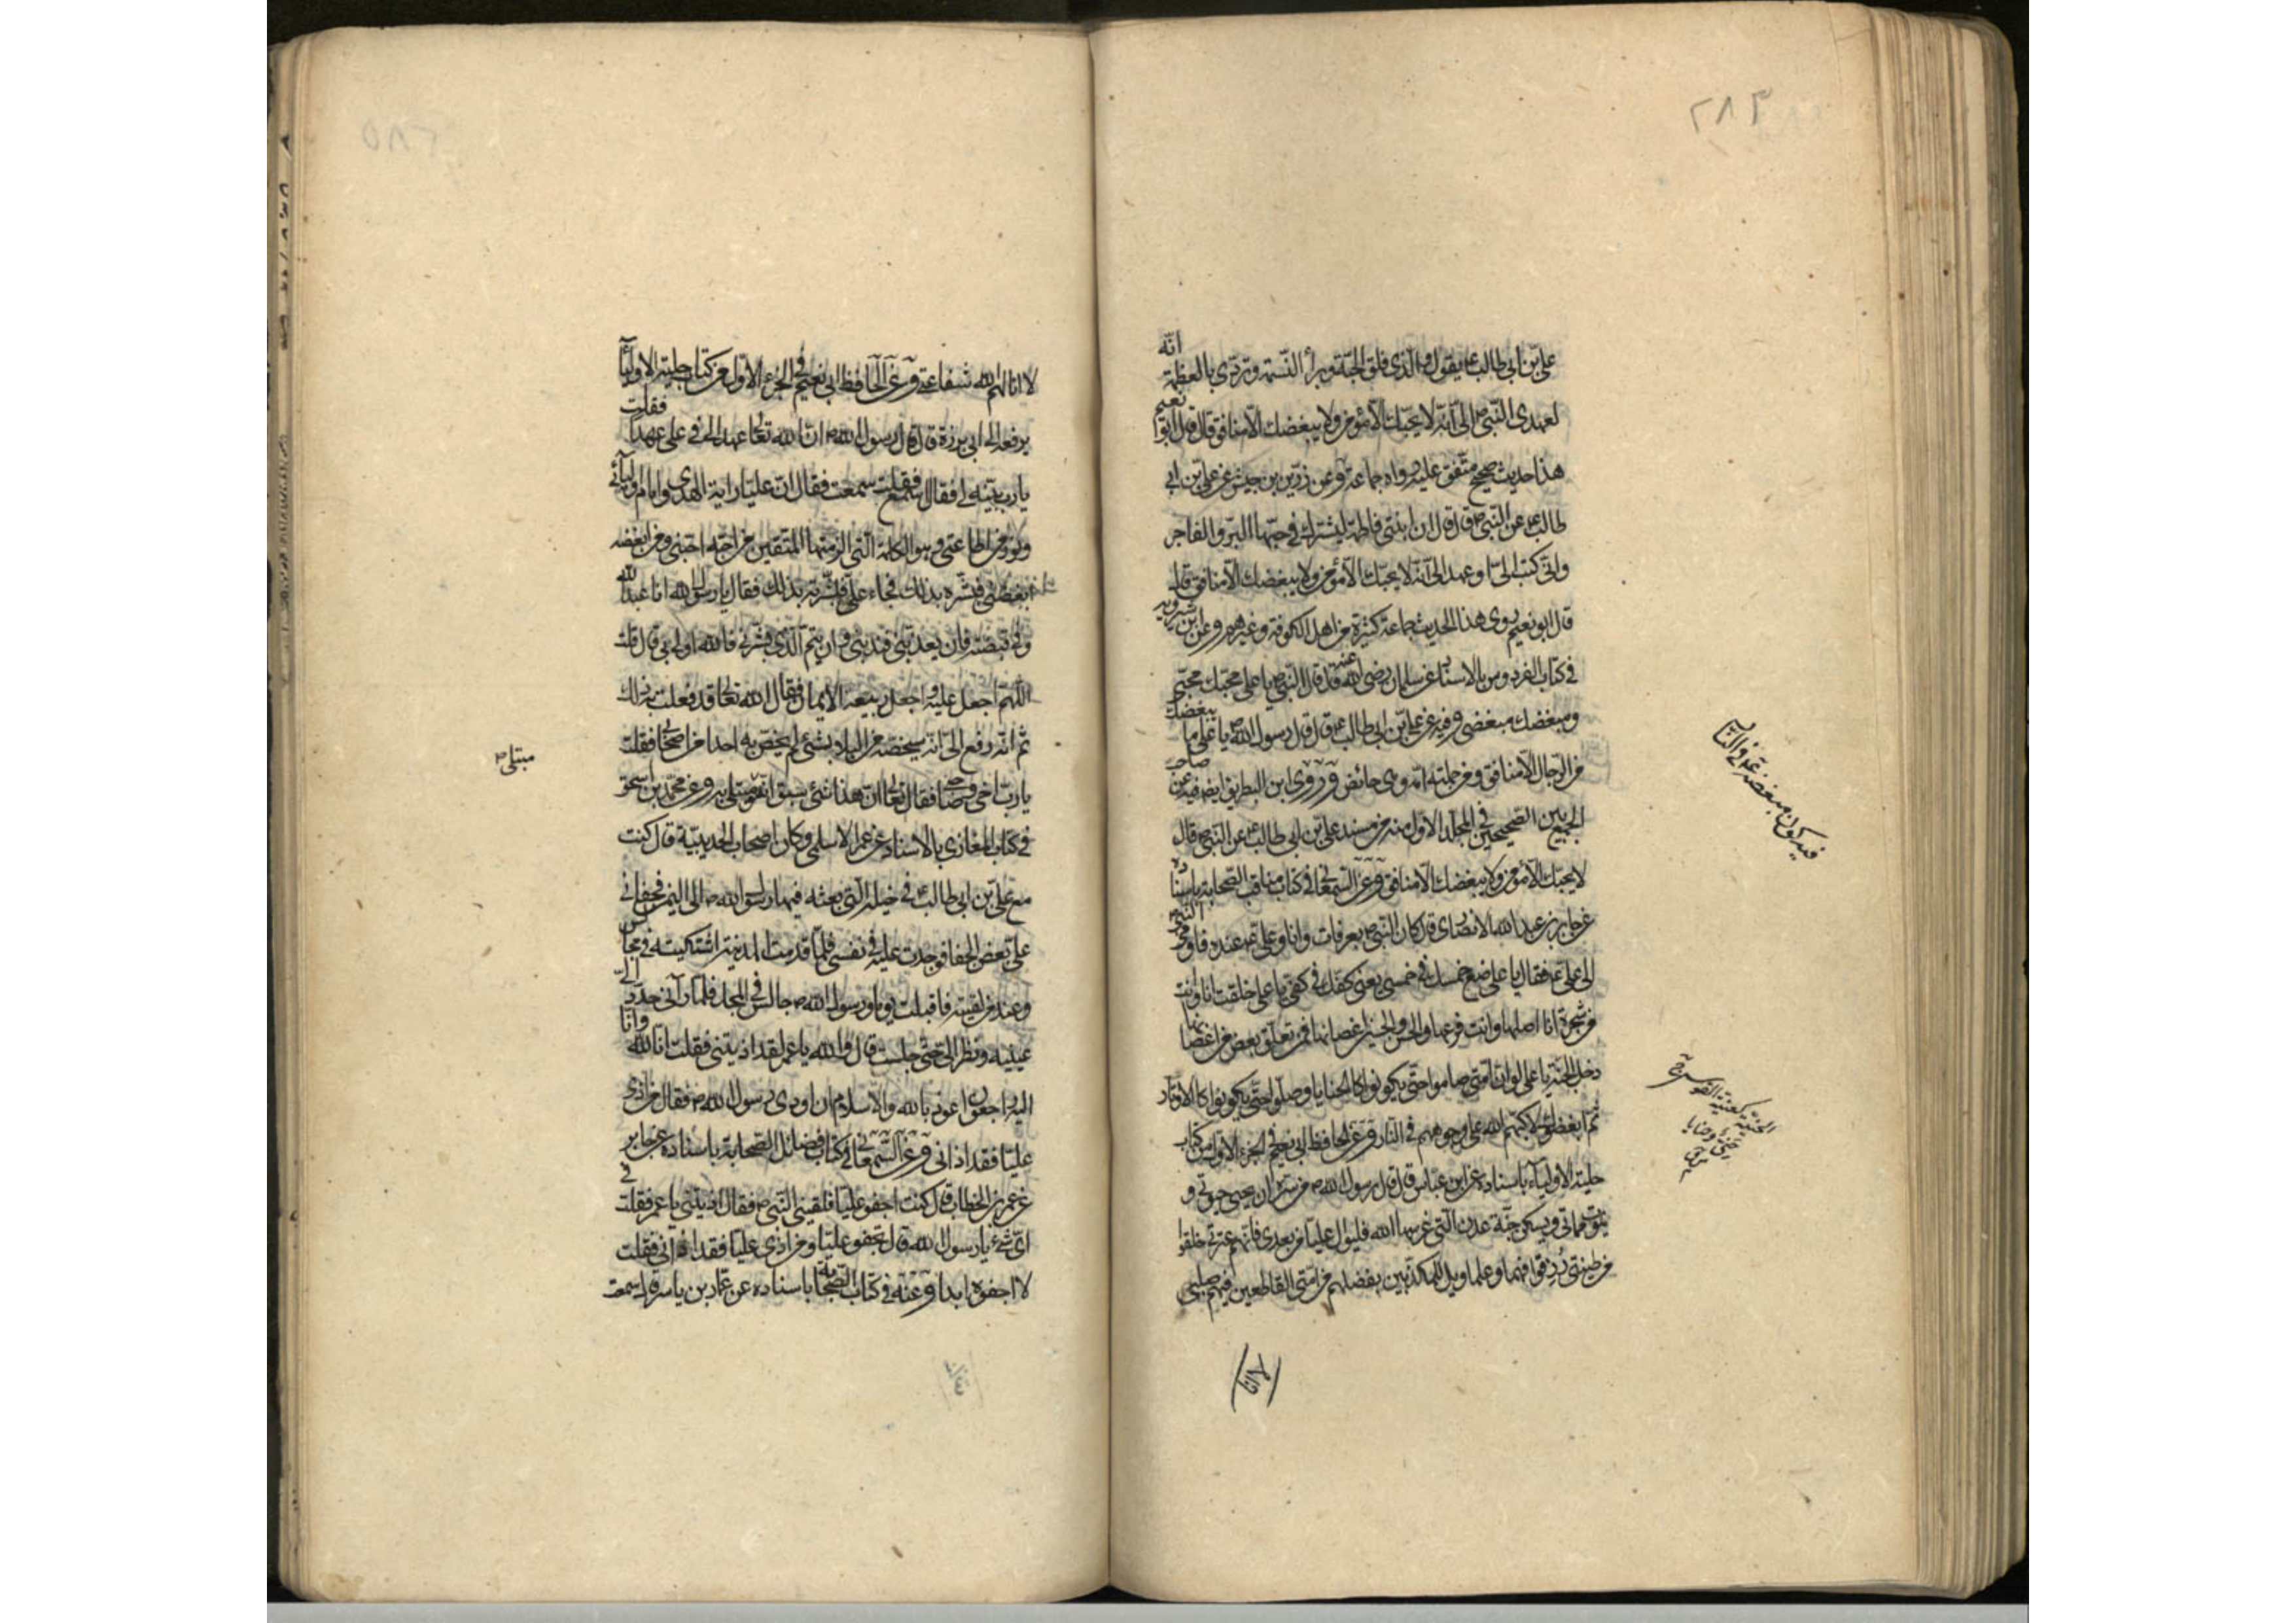 ٢٨٣
علي بن ابي طالب ع يقول والذي فلق الحبة وبرأ النسمة وتردى بالعظمة انّه
لعهدى النبي ص الى انّه لا يحبّك الا مؤمن ولا يبغضك الا منافق قال قال ابو نعيم
هذا حديث صحيح متّفق عليه رواه جماعة وعن زرّ بن حبيش عن علي بن ابي
طالب ع عن النبي ص قال قال ان ابنتى فاطمة ليشترك في حبّها البرّ والفاجر
وانى كتب الى او عهد الى انه لا يحبّك الا مؤمن ولا يبغضك الا منافق
قال ابو نعيم روى هذا الحديث جماعة كثيرة من اهل الكوفة وغيرهم وعن ابن شيرويه
في كتاب الفردوس بالاسناد عن سلمان رضي الله عنه قال قال النبي ص يا علي محبّك محبّي
ومبغضك مبغضي وفيه عن علي بن ابي طالب ع قال قال رسول الله ص يا علي ما يبغضك
من الرجال الا منافق ومن حملته امّه وهي حائض وروى ابن البطريق ايضا فيه عن صاحب
الجمع بين الصحيحين في المجلد الاول منه من مسند علي بن ابي طالب ع عن النبي ص قال
لا يحبّك الا مؤمن ولا يبغضك الا منافق وعن السمعاني في كتاب مناقب الصحابة باسناده
عن جابر بن عبد الله الانصاري قال كان النبي ص بعرفات وانا وعلي ع عنده فاومى النبي ص
الى علي ع فقال يا علي ضع خمسك في خمسي يعنى كفّك في كفّي يا علي خلقت انا وانت
من شجرة انا اصلها وانت فرعها والحسن والحسين اغصانها فمن تعلّق ببعض من اغصانها
دخل الجنة يا علي لو ان امّتي صاموا حتى يكونوا كالحنايا وصلّوا حتى يكونوا كالاوتاد
ثم ابغضوك لاكبّهم الله على وجوههم في النار وعن الحافظ ابي نعيم في الجزء الاول من كتاب
حلية الاولياء باسناده عن ابن عباس قال قال رسول الله ص من سرّه ان يحيى حيوتي و
يموت مماتي ويسكن جنّة عدن التي غرسها الله فليوال عليا من بعدي فانهم عترتي خلقوا
من طينتي رزقوا فهما وعلما ويل للمكذبين بفضلهم من امّتي القاطعين فيهم صلتي
فيدكون مبغضه ع في النار
الحنيّة كعنية القوس
حنيّ وحنايا
لا انا
٢٨٥
لا انالهم الله شفاعتي وعن الحافظ ابي نعيم في الجزء الاول من كتاب حلية الاولياء
يرفعه الى ابي برزة قال قال رسول الله ص ان الله تعالى عهد الى في علي عهدا فقلت
يا رب بيّنه لي فقال اسمع فقلت سمعت فقال ان عليا راية الهدى وامام اوليائي
ونور من اطاعني وهو الكلمة التي الزمتها المتقين من احبّه احبّني ومن ابغضه
ابغضني فبشّره بذلك فجاء علي فبشّرته بذلك فقال يا رسول الله انا عبد الله
وفي قبضته فان يعذّبني فبذنبي وان يتم الذي بشّرني فالله اولى بي قال قلت
اللهم اجعل عليه واجعل ربيعه الايمان فقال الله تعالى قد فعلت به ذلك
ثم انه رفع الى انه سيخصّه من البلاء بشئ لم يخصّ به احدا من اصحابي فقلت
يا رب اخي وصاحبي فقال تعالى ان هذا شئ سبق انه مبتلى به وعن محمد بن اسحق
في كتاب المغازي بالاسناد عن عمر الاسلمي وكان اصحاب الحديبيّة قال كنت
مع علي بن ابي طالب ع في خيله التي بعثه فيها رسول الله ص الى اليمن فجفاني
علي بعض الجفا فوجدت عليه في نفسي فلمّا قدمت المدينة اشتكيته في مجالس
وعند من لقيته فاقبلت يوما ورسول الله ص جالس في المسجد فلما رآني حدّد الى
عينيه ونظر الى حتى جلست قال والله يا عمر لقد اذيتني فقلت انا لله وانا
اليه راجعون اعوذ بالله والاسلام ان اوذي رسول الله ص فقال من اذى
عليا فقد اذاني وعن السمعاني في كتاب فضائل الصحابة باسناده عن جابر
عن عمر بن الخطاب قال كنت اجفو عليا فلقيني النبي ص فقال اذيتني يا عمر فقلت في
اىّ شئ يا رسول الله قال تجفو عليا ومن اذى عليا فقد اذاني فقلت
لا اجفوه ابدا وعنه في كتاب الصحابة باسناده عن عمار بن ياسر قال سمعت
مبتلى ص